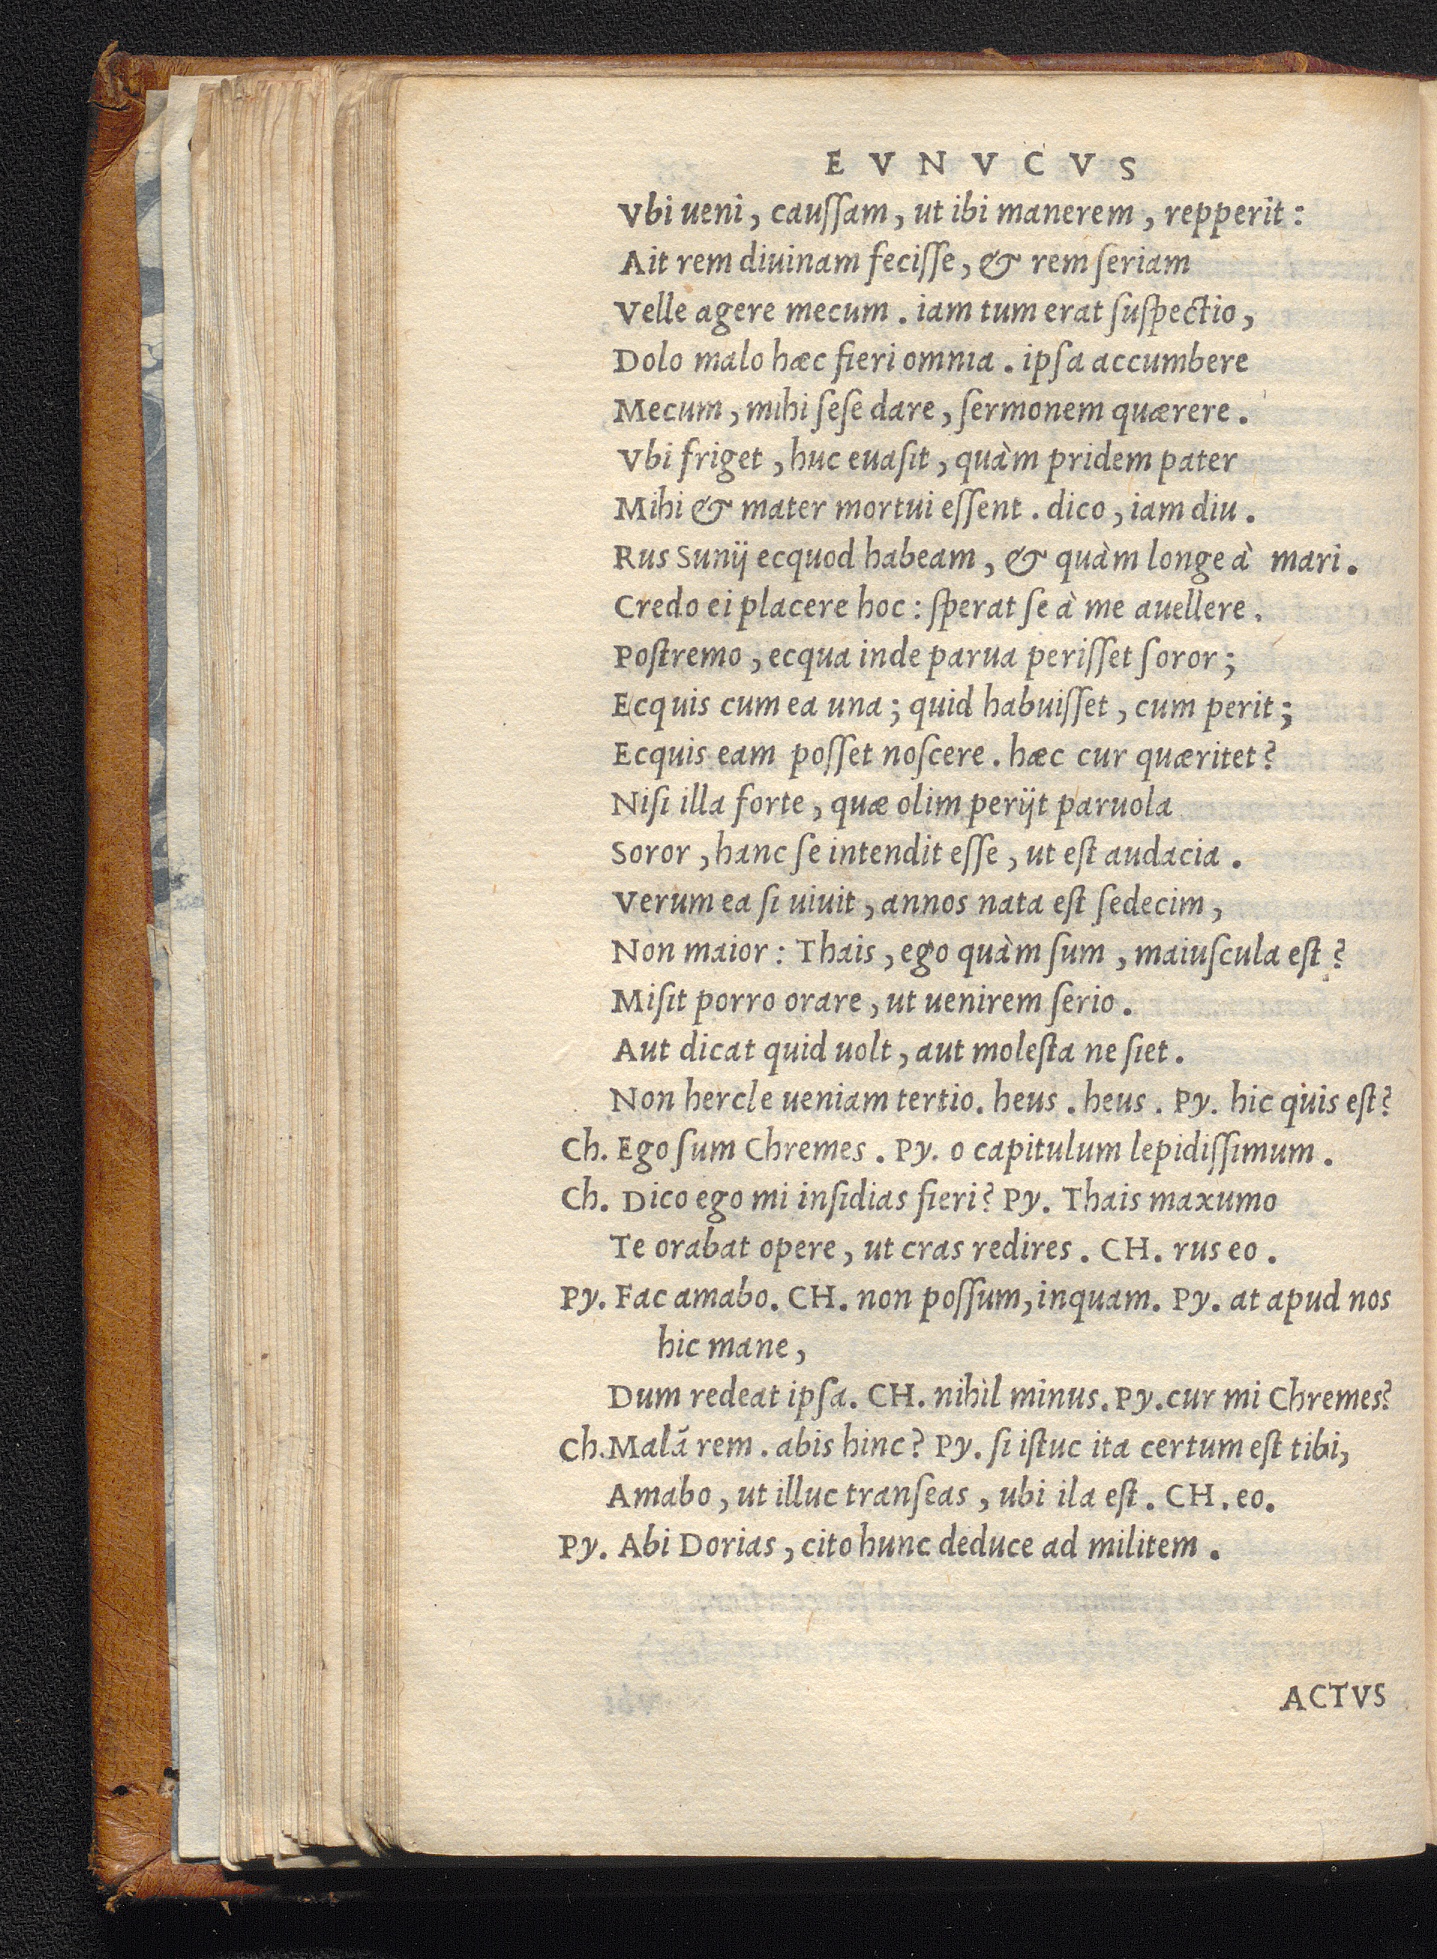 EVNVCVS
Vbi ueni, caussam, ut ibi manerem, repperit:
Ait rem diuinam fecisse, & rem seriam
Velle agere mecum. iam tum erat suspectio,
Dolo malo hæc fieri omnia. ipsa accumbere
Mecum, mihi sese dare, sermonem quærere.
Vbi friget, huc euasit, quàm pridem pater
Mihi & mater mortui essent. dico, iam diu.
Rus Sunij ecquod habeam, & quàm longe à mari.
Credo ei placere hoc: sperat se à me auellere.
Postremo, ecqua inde parua perisset soror;
Ecquis cum ea una; quid habuisset, cum perit;
Ecquis eam posset noscere. hæc cur quæritet?
Nisi illa forte, quæ olim perijt paruola
Soror, hanc se intendit esse, ut est audacia.
Verum ea si uiuit, annos nata est sedecim,
Non maior: Thais, ego quàm sum, maiuscula est?
Misit porro orare, ut uenirem serio.
Aut dicat quid uolt, aut molesta ne siet.
Non hercle ueniam tertio. heus. heus. Py. hic quis est?
Ch. Ego sum Chremes. Py. o capitulum lepidissimum.
Ch. Dico ego mi insidias fieri? Py. Thais maxumo
Te orabat opere, ut cras redires. CH. rus eo.
Py. Fac amabo. CH. non possum, inquam. Py. at apud nos
hic mane,
Dum redeat ipsa. CH. nihil minus. Py. cur mi Chremes?
Ch. Malã rem. abis hinc? Py. si istuc ita certum est tibi,
Amabo, ut illuc transeas, ubi ila est. CH. eo.
Py. Abi Dorias, cito hunc deduce ad militem.
ACTVS